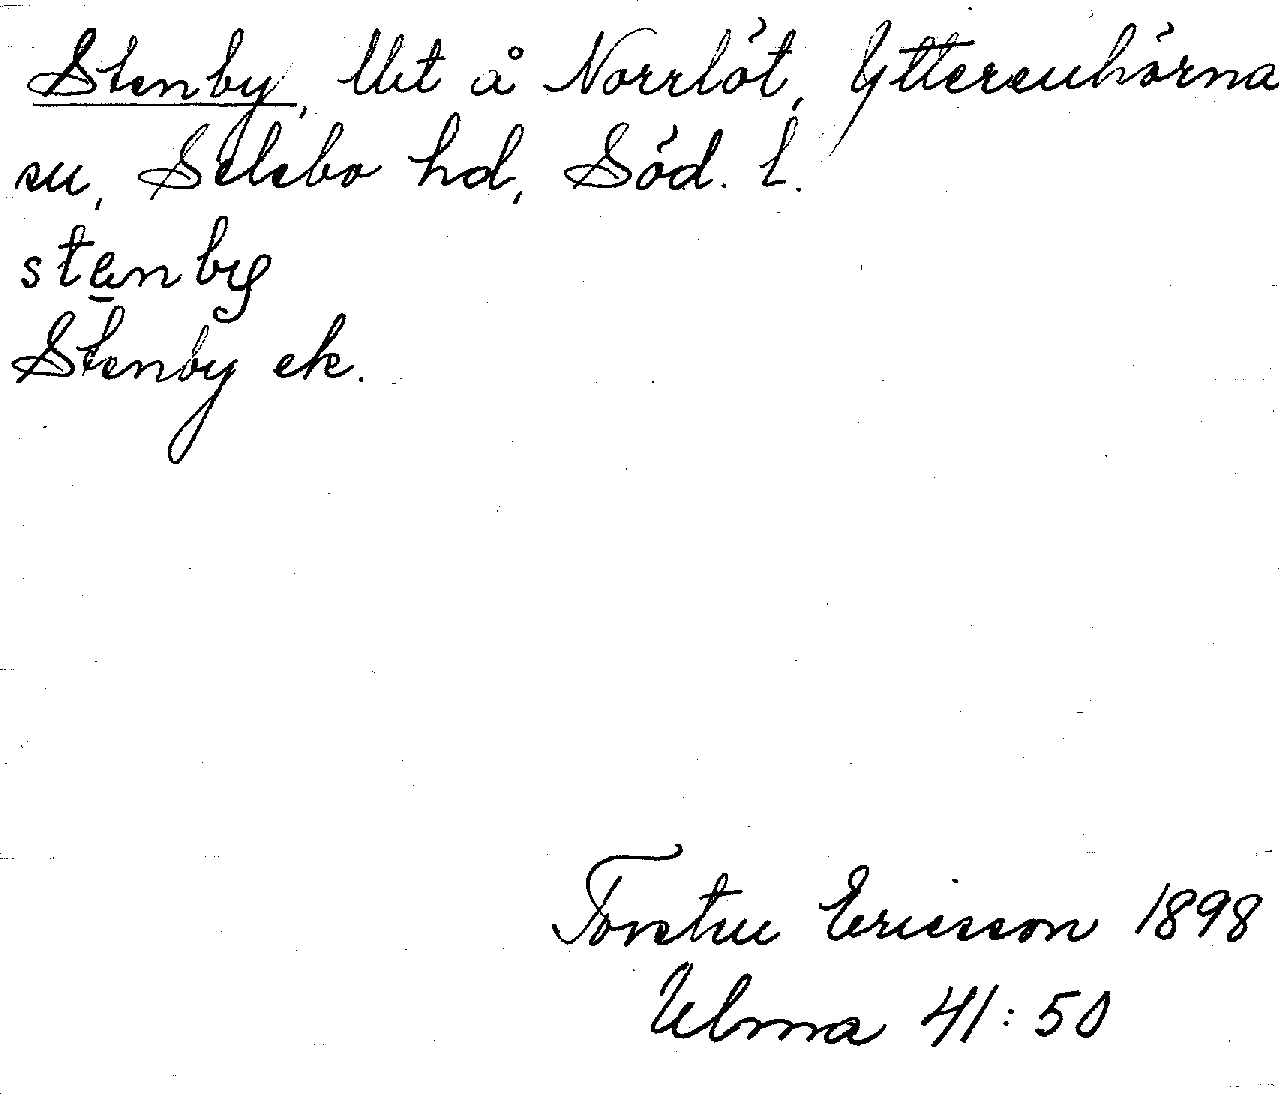 Stenby, Uet å Norrlöt, Ytterenhörna
sn, Selebo hd, Söd. l.
stenby
Stenby ek.
Torsten Ericsson 1898
Ulma 41:50